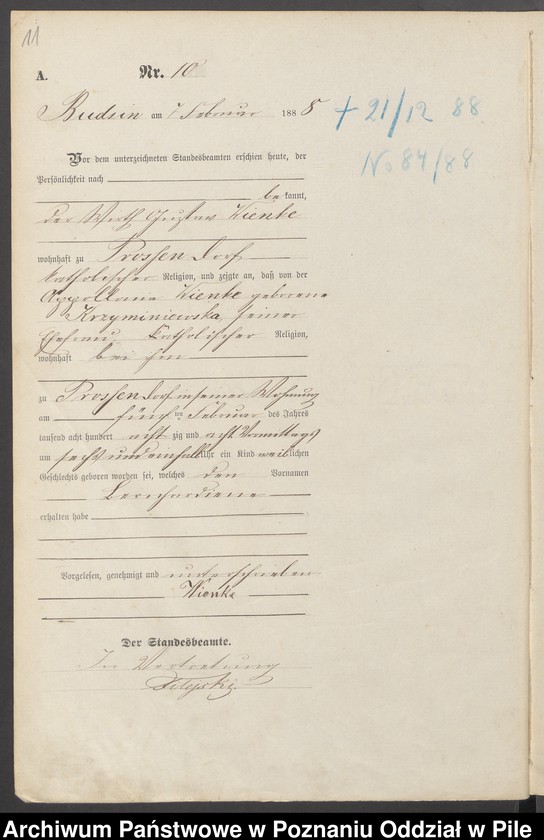 11
A.
Nr. 10
Budsin am 7 Februar 1888
+ 21/12 88.
No 84/88
Vor dem unterzeichneten Standesbeamten erschien heute, der
Persönlichkeit nach
be kannt,
der Wirth Gustav Kienke
wohnhaft zu Prossen Dorf
katholischer Religion, und zeigte an, daß von der
Appollonie Kienke geborene
Krzyminiewska, seiner
Ehefrau, Katholischer Religion,
wohnhaft bei ihm
zu Prossen Dorf in seiner Wohnung
am Februar des Jahres
tausend acht hundert acht zig und acht Vormittags
um sechs und einhalb Uhr ein Kind weiblichen
Geschlechts geboren worden sei, welches den Vornamen
Bernhardiene
erhalten habe
Vorgelesen, genehmigt und unterschrieben
Kienke
Der Standesbeamte.
In Vertretung
Archiwum Państwowe w Poznaniu Oddział w Pile